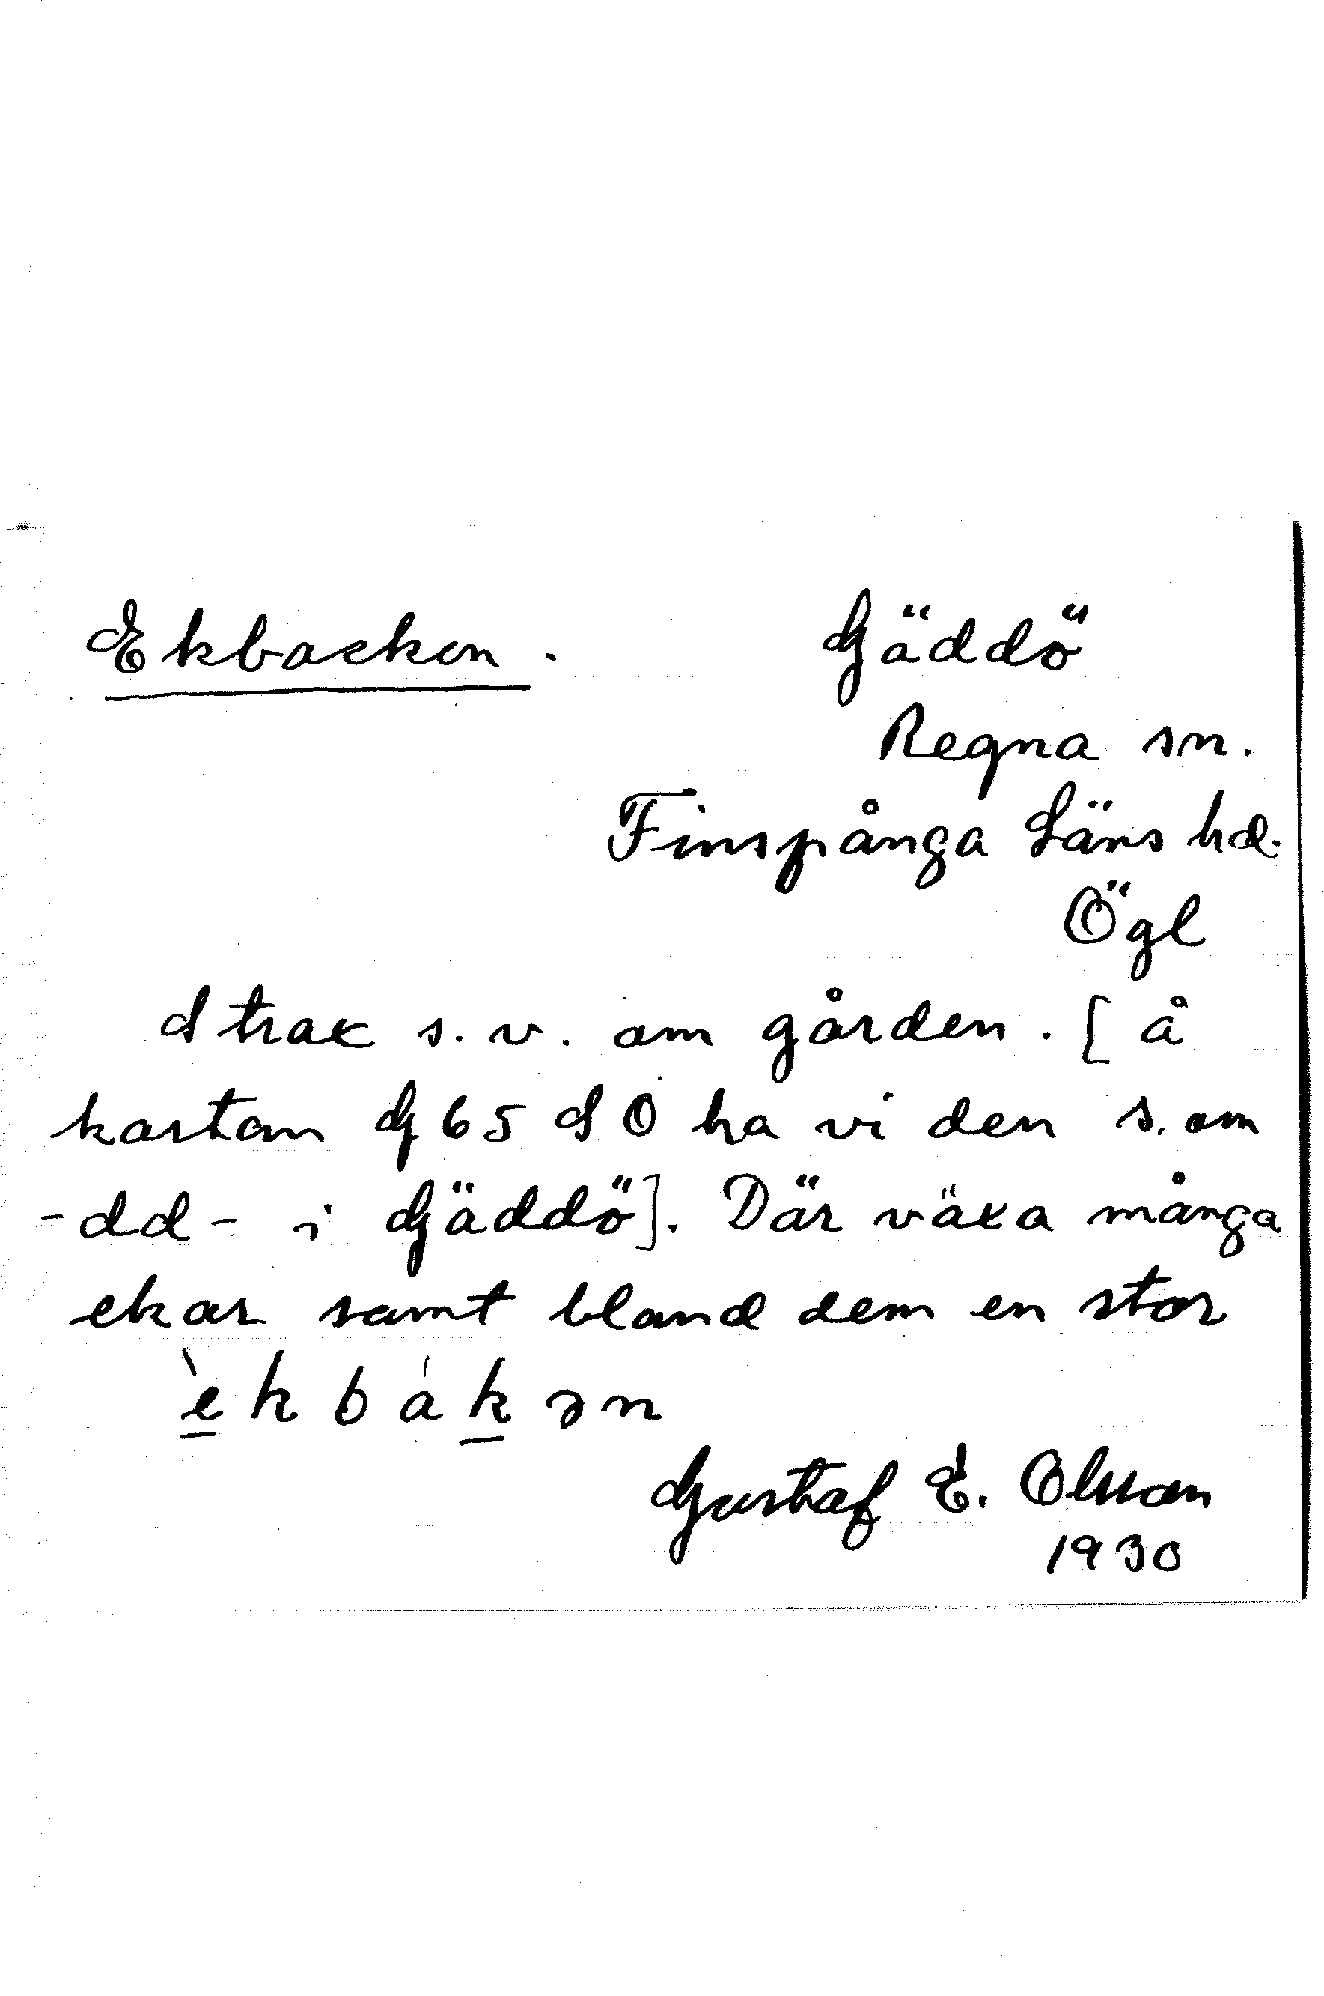 Ekbacken. Gäddö
Regna sn.
Finspånga Läns hd.
Ögl
Strax s.v. om gården. [å
kartan G 65 SO ha vi den s. om
-dd- i Gäddö]. Där växa många
ekar samt bland dem en stor
èkbákən
Gustaf E. Olsson
1930